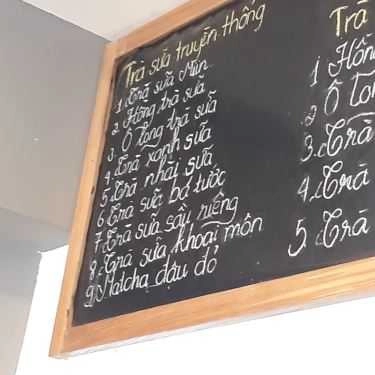 Trà sữa truyền thống
1. Trà sữa Min
2. Hồng trà sữa
3. Ô long trà sữa
4. Trà xanh sữa
5. Trà nhài sữa
6. Trà sữa bá tước
7. Trà sữa sầu riêng
8. Trà sữa khoai môn
9. Matcha đậu đỏ
Trà
1. Hồn
2. Ô lon
3. Trà
4. Trà
5. Trà